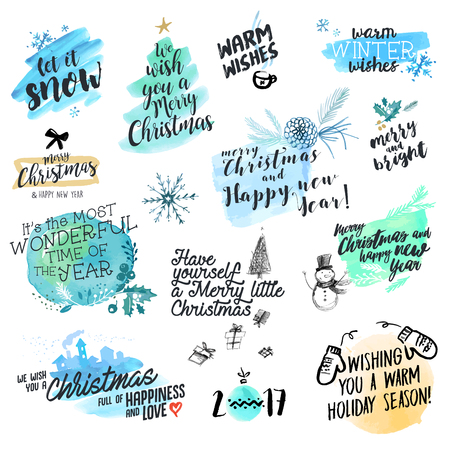 let it
snow
We
wish
you a
Merry
Christmas
WARM
WISHES
warm
WINTER
wishes
merry
Christmas
& HAPPY NEW YEAR
merry
Christmas
and
Happy new
Year!
merry
and
bright
IT'S THE MOST
WONDERFUL
TIME OF
THE YEAR
Have
yourself
a Merry little
Christmas
Merry
Christmas and
happy new
Year
WE WISH
YOU A
Christmas
FULL OF HAPPINESS
AND LOVE
2017
WISHING
YOU A WARM
HOLIDAY SEASON!